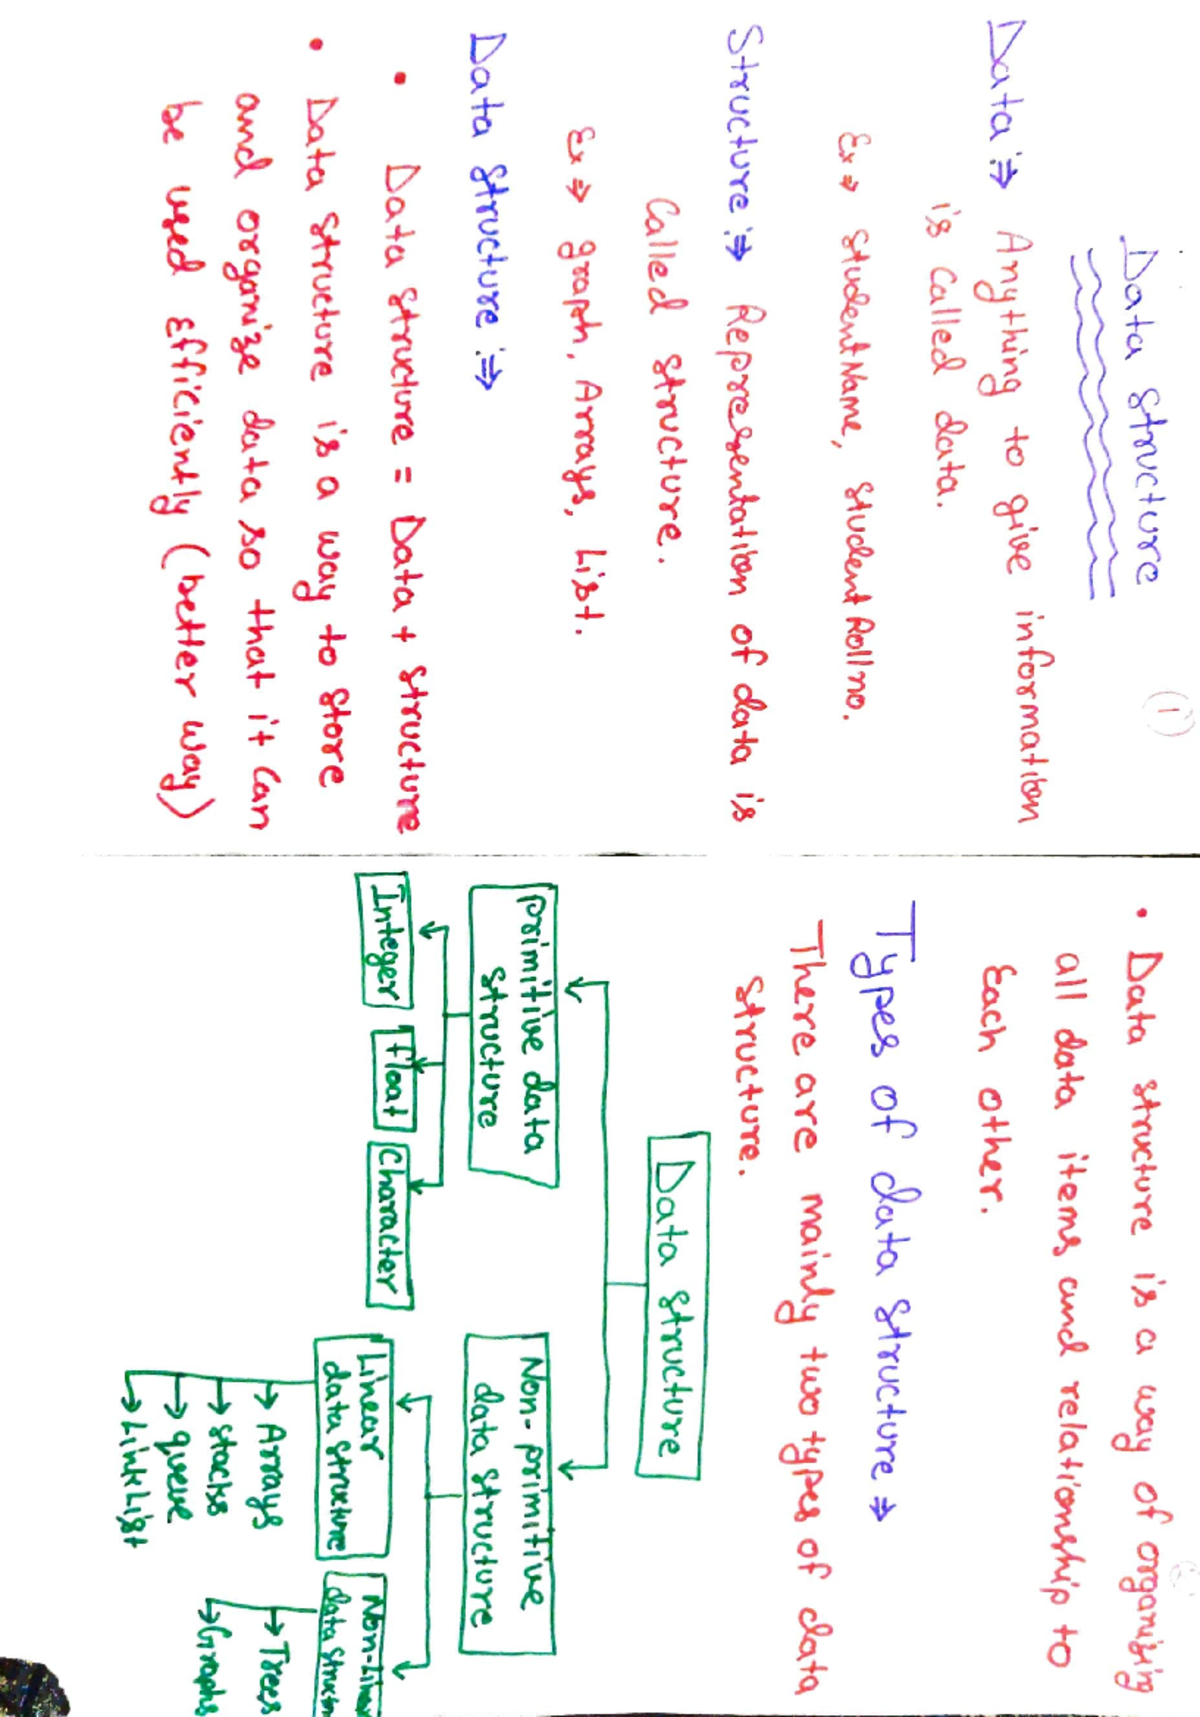 (1)
Data Structure
Data :⇒ Anything to give information
is called data.
Ex ⇒ Student Name, Student Rollno.
Structure :⇒ Representation of data is
called structure.
Ex ⇒ graph, Arrays, List.
Data Structure :⇒
• Data structure = Data + structure
• Data structure is a way to store
and organize data so that it can
be used efficiently (better way)
• Data structure is a way of organising
all data items and relationship to
each other.
Types of data structure ⇒
There are mainly two types of data
structure.
Data structure
primitive data
structure
Integer
float
Character
Non-primitive
data structure
Linear
data structure
→ Arrays
→ stacks
→ queue
→ Link List
Non-linear
data structure
→ Trees
→ Graphs